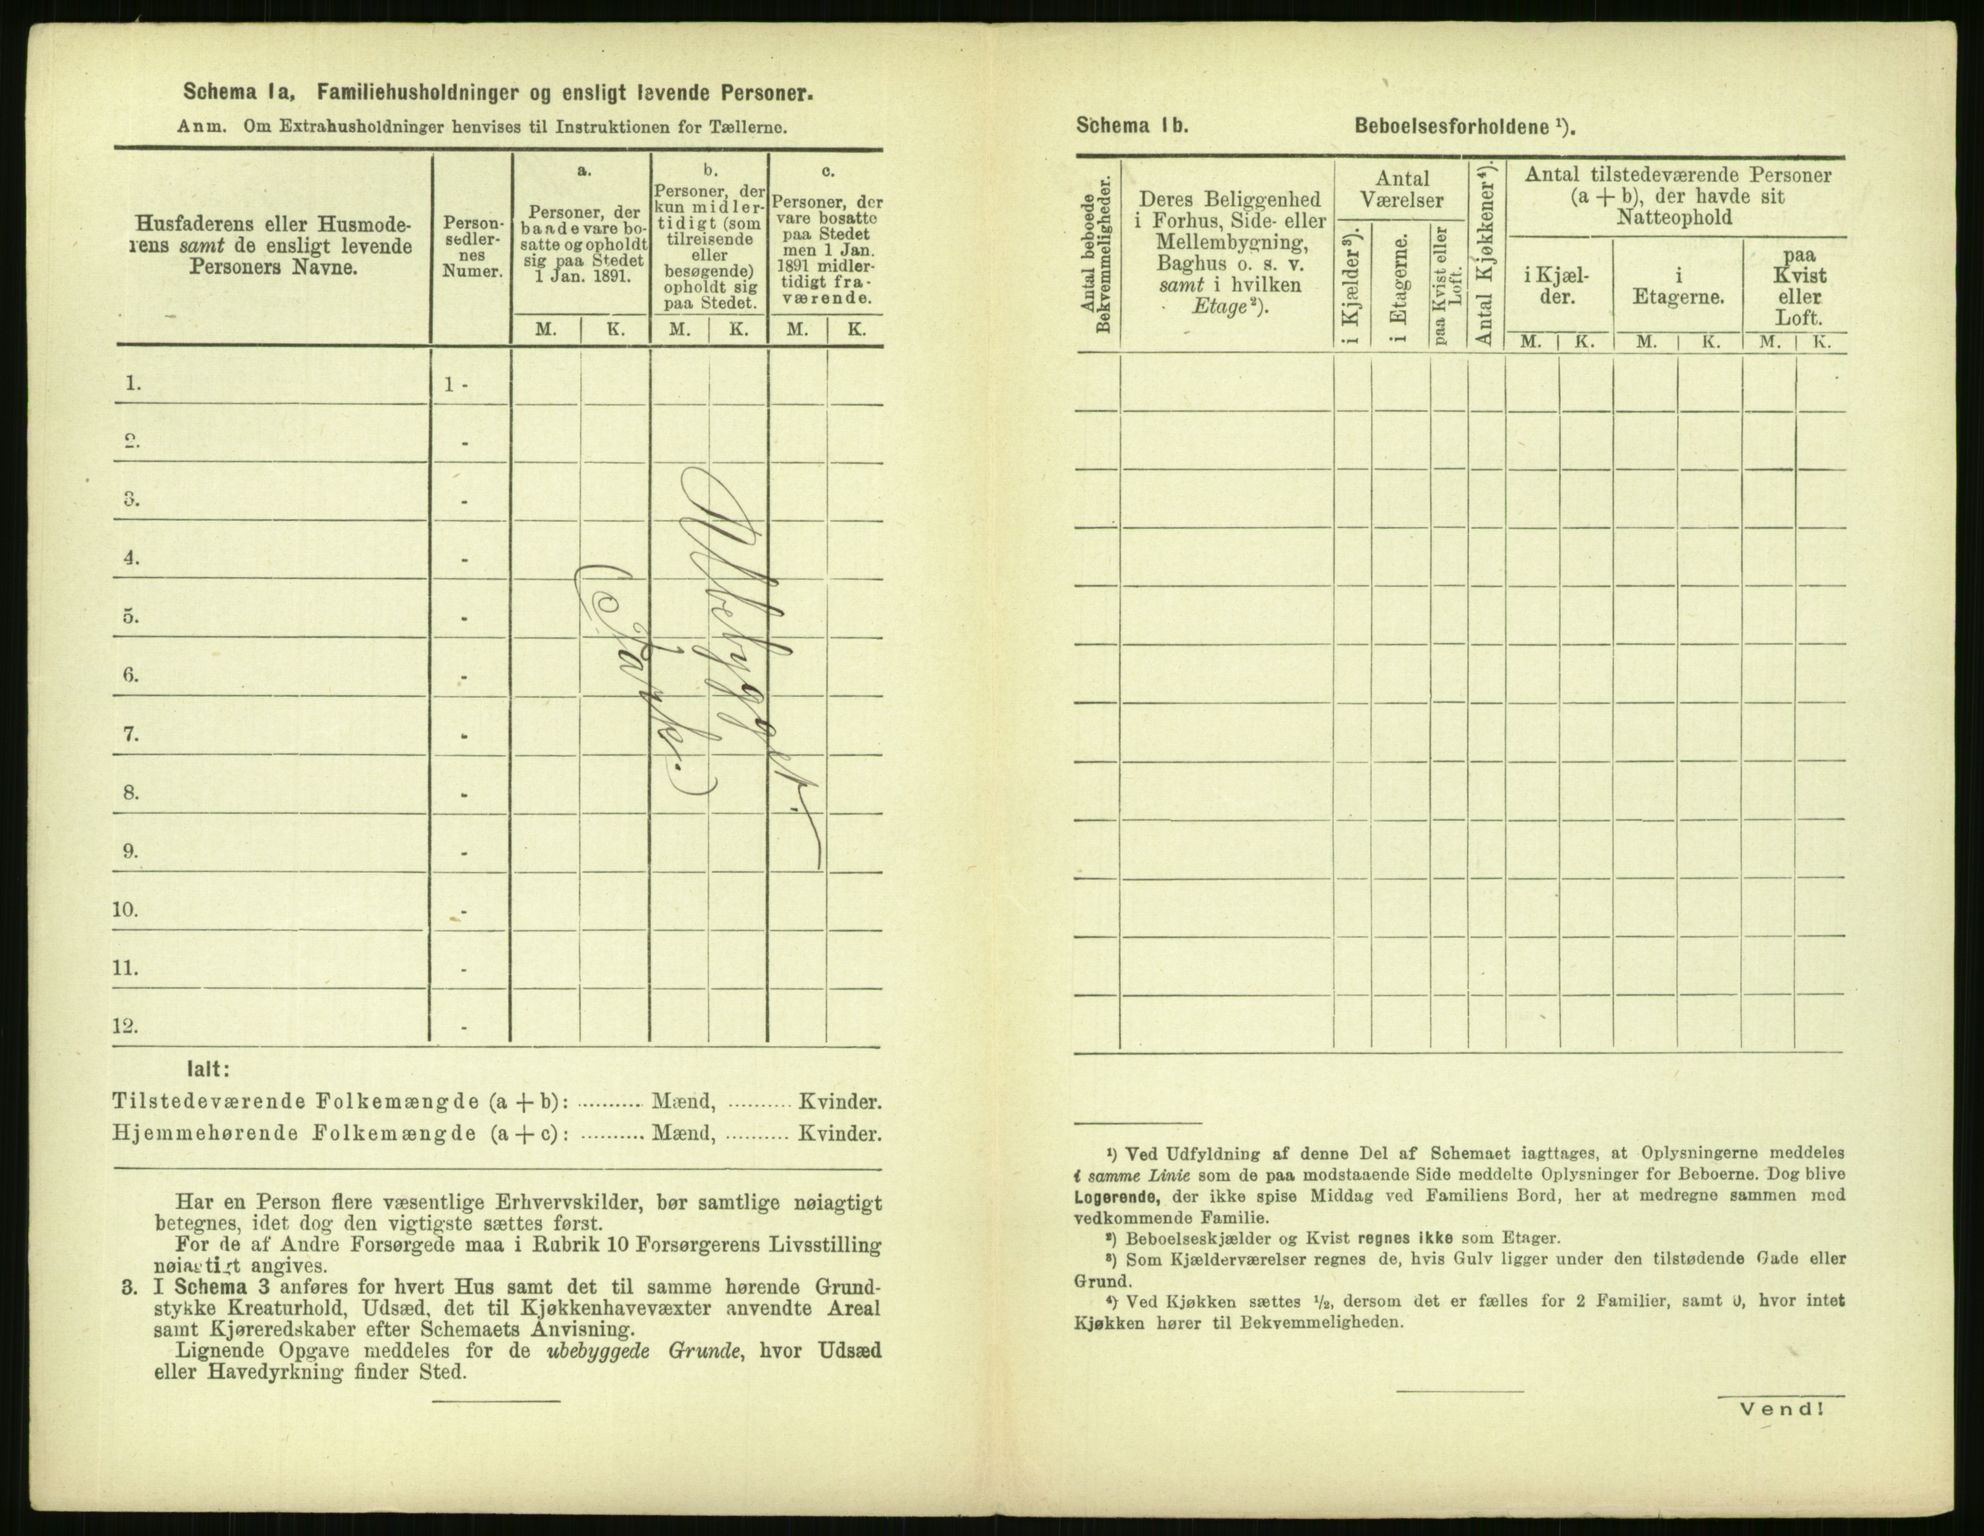 Schema 1a, Familiehusholdninger og ensligt levende Personer.
Anm. Om Extrahusholdninger henvises til Instruktionen for Tællerne.
Husfaderens eller Husmode-
rens samt de ensligt levende
Personers Navne.
Person-
sedler-
nes
Numer.
a.
Personer, der
baade vare bo-
satte og opholdt
sig paa Stedet
1 Jan. 1891.
b.
Personer, der
kun midler-
tidigt (som
tilreisende
eller
besøgende)
opholdt sig
paa Stedet.
c.
Personer, der
vare bosatte
paa Stedet
men 1 Jan.
1891 midler-
tidigt fra-
værende.
M. K. M. K. M. K.
1. 1 -
2. -
3. -
4. -
5. -
6. -
7. -
8. -
9. -
10. -
11. -
12. -
Ubebygget.
(Park.)
Ialt:
Tilstedeværende Folkemængde (a + b): .......... Mænd, .......... Kvinder.
Hjemmehørende Folkemængde (a + c): .......... Mænd, .......... Kvinder.
Har en Person flere væsentlige Erhvervskilder, bør samtlige nøiagtigt
betegnes, idet dog den vigtigste sættes først.
For de af Andre Forsørgede maa i Rubrik 10 Forsørgerens Livsstilling
nøiagtigt angives.
3. I Schema 3 anføres for hvert Hus samt det til samme hørende Grund-
stykke Kreaturhold, Udsæd, det til Kjøkkenhavevæxter anvendte Areal
samt Kjøreredskaber efter Schemaets Anvisning.
Lignende Opgave meddeles for de ubebyggede Grunde, hvor Udsæd
eller Havedyrkning finder Sted.
Schema 1b. Beboelsesforholdene ¹).
Antal beboede
Bekvemmeligheder.
Deres Beliggenhed
i Forhus, Side- eller
Mellembygning,
Baghus o. s. v.
samt i hvilken
Etage²).
Antal
Værelser
i Kjælder³).
i Etagerne.
paa Kvist eller
Loft.
Antal Kjøkkener⁴).
Antal tilstedeværende Personer
(a + b), der havde sit
Natteophold
i Kjæl-
der.
i
Etagerne.
paa
Kvist
eller
Loft.
M. K. M. K. M. K.
¹) Ved Udfyldning af denne Del af Schemaet iagttages, at Oplysningerne meddeles
i samme Linie som de paa modstaaende Side meddelte Oplysninger for Beboerne. Dog blive
Logerende, der ikke spise Middag ved Familiens Bord, her at medregne sammen med
vedkommende Familie.
²) Beboelseskjælder og Kvist regnes ikke som Etager.
³) Som Kjælderværelser regnes de, hvis Gulv ligger under den tilstødende Gade eller
Grund.
⁴) Ved Kjøkken sættes ½, dersom det er fælles for 2 Familier, samt 0, hvor intet
Kjøkken hører til Bekvemmeligheden.
Vend!